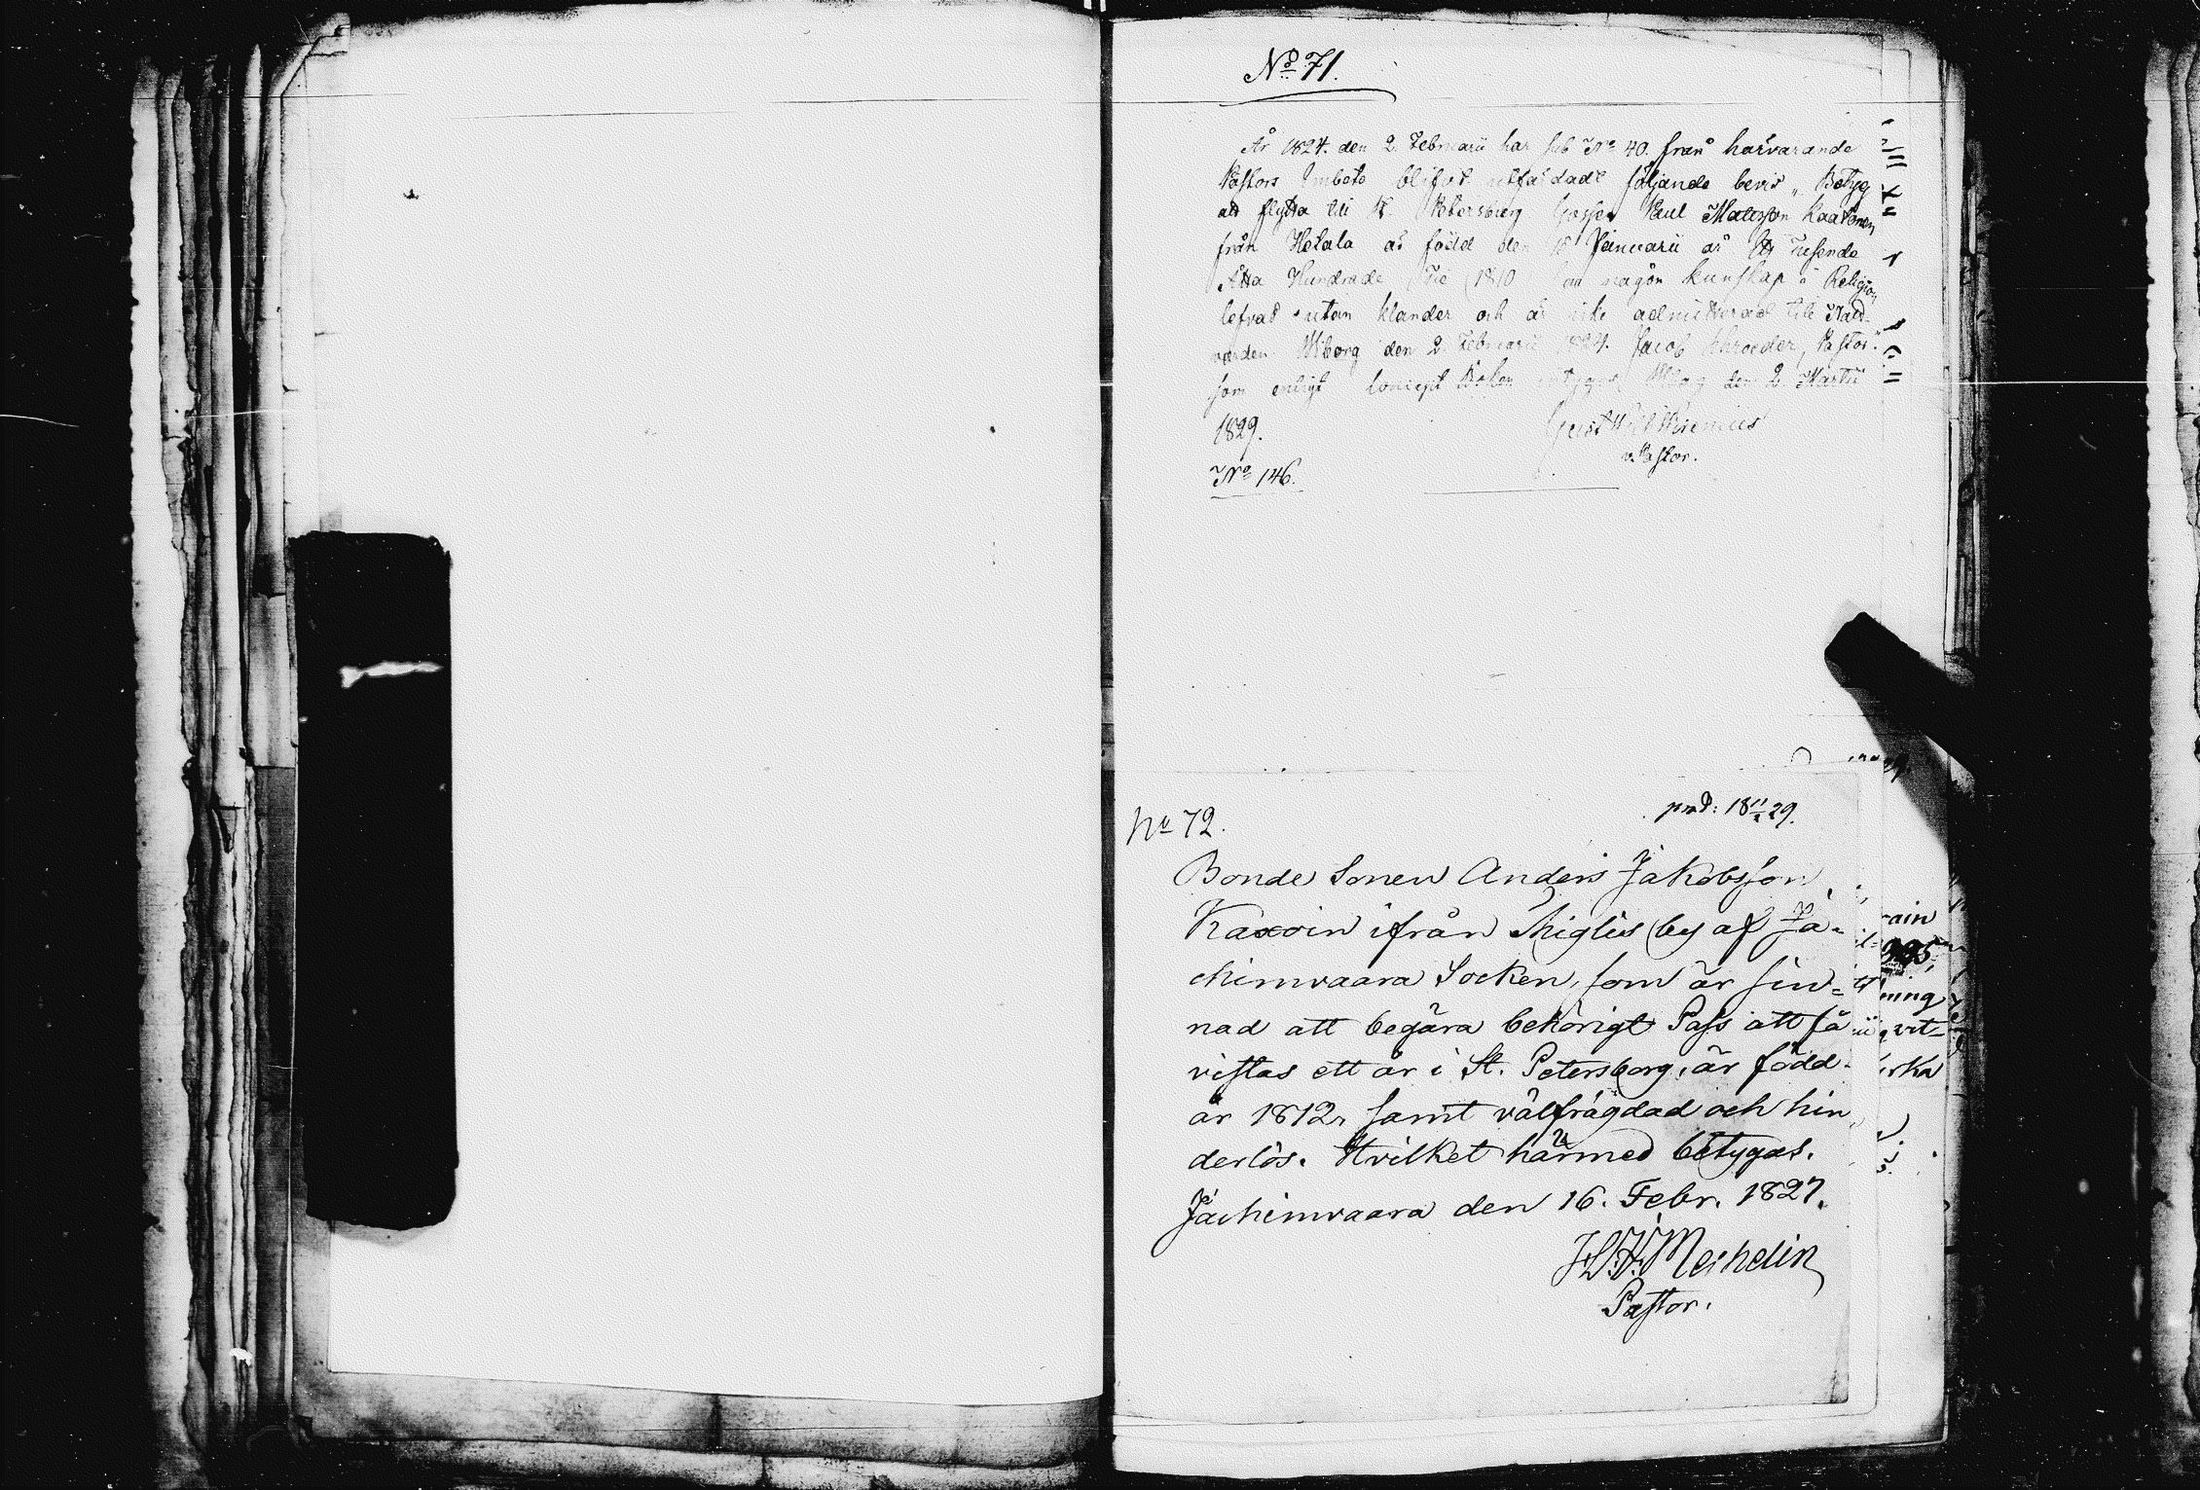 No 71.
År 1824. den 2. Februarii har sub No 40. från härvarande
Pastors Embete blifvit utfärdadt följande bevis „ Betyg
att flytta till St. Petersburg Gossen Paul Matsson Kaatonen
från Hetala är född den Januarii år Ett Tusende
Åtta Hundrade Tie (1810 har någon kunskap i Religion
lefvad utan klander och är icke admitterad till Natt-
varden Wiborg den 2. Februarii 1824. Jacob Schroeder, Pastor."
som enligt Concept Boken betygas Wiborg den 2. Martii
1829.
Wirenius
v. Pastor.
No 146.
prod: 18 11/4 29.
No 72.
Bonde Sonen Anders Jakobsson
Kaxoin ifrån Miglis by af Ja-
chimvaara Socken, som är sin-
nad att begära behörigt Pass att få
vistas ett år i St. Petersborg, är född
år 1812, samt välfrägdad och hin-
derlös. Hvilket härmed betygas.
Jachimvaara den 16. Febr. 1827.
Mechelin
Pastor.